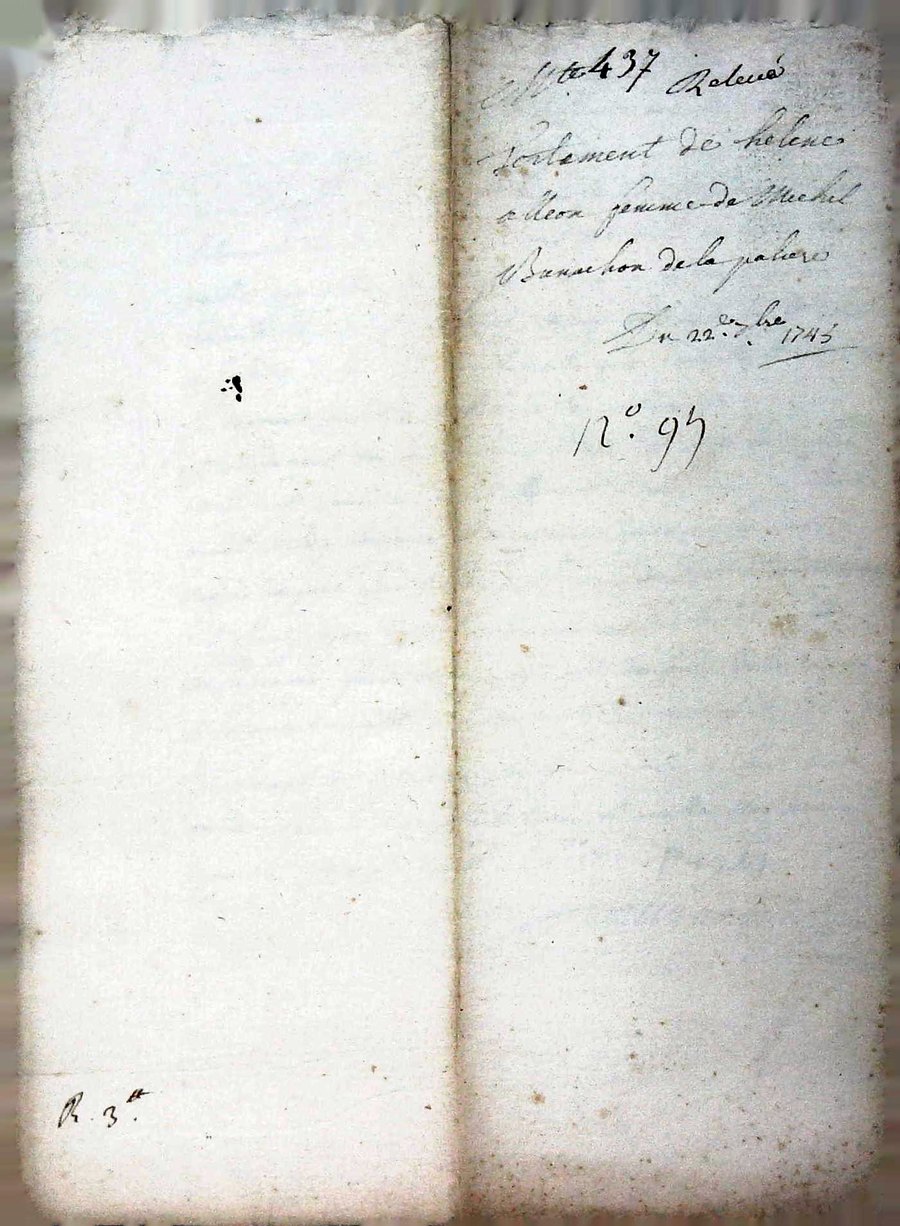 437 Relevé
Testament de helene
alleon femme de Michel
Banachon de la paliere
Du 22e 7bre 1745
No. 95
R. 3tt.